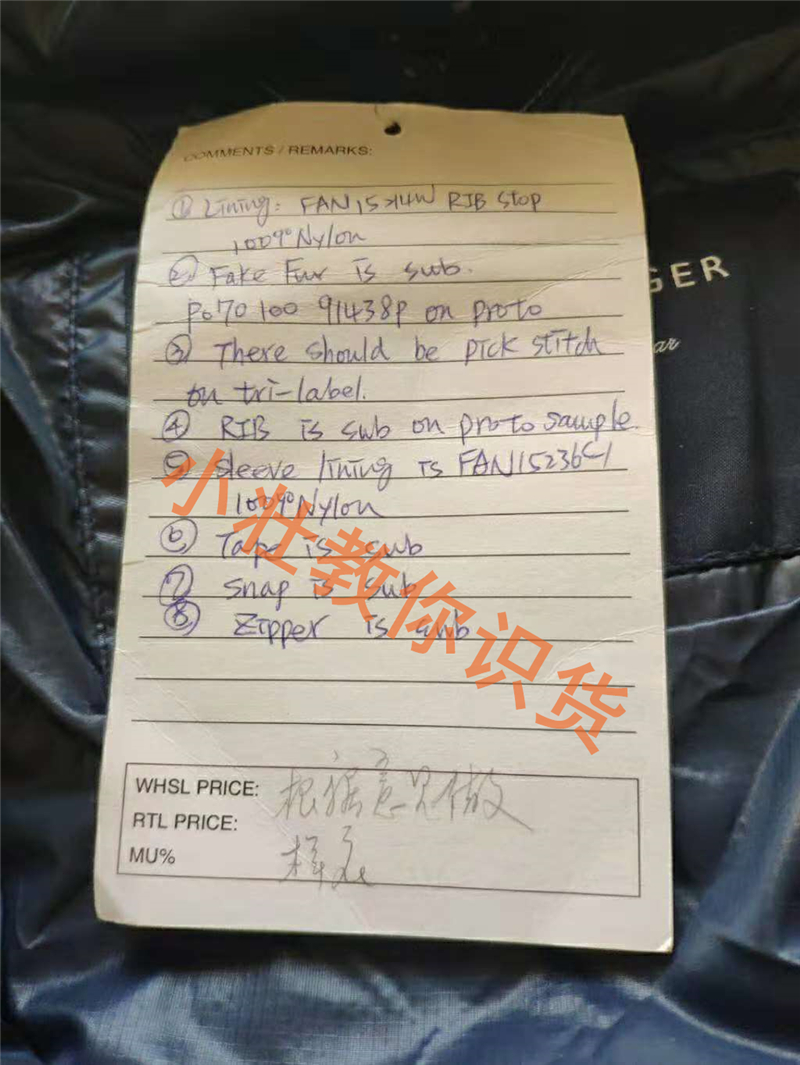 COMMENTS / REMARKS:
① Lining: FAN15214W RIB Stop
100% Nylon
② Fake Fur is sub.
Po70100 91438P on proto
③ There should be pick stitch
on tri-label.
④ RIB is sub on proto sample.
⑤ Sleeve lining is FAN15236C1
100% Nylon
⑥ Tape is sub
⑦ Snap is sub
⑧ Zipper is sub
WHSL PRICE: 根据意见做
RTL PRICE:
MU% 样衣
GER
ar
小壮教你识货